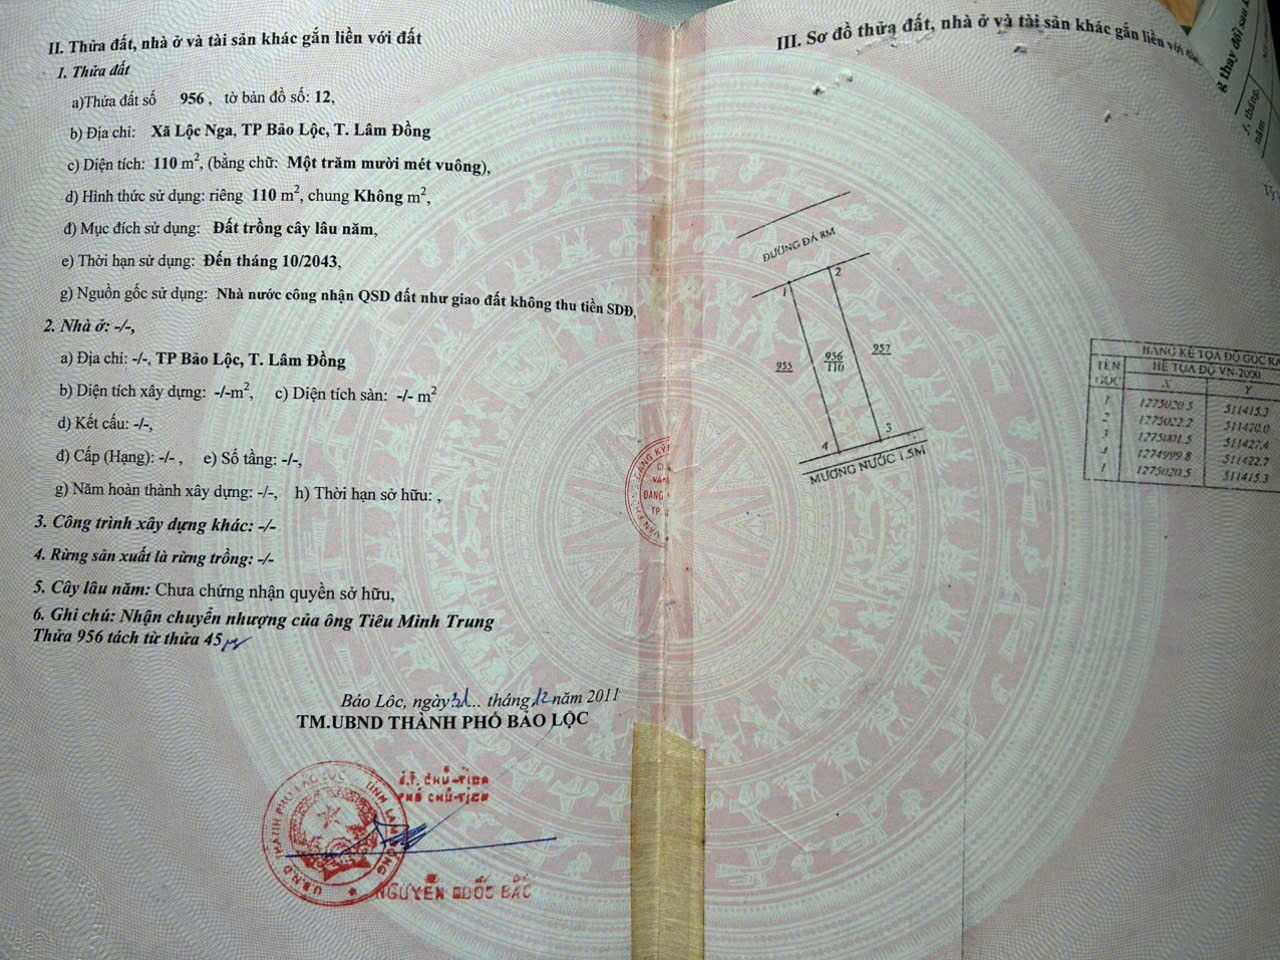 II. Thửa đất, nhà ở và tài sản khác gắn liền với đất
1. Thửa đất
a)Thửa đất số 956 , tờ bản đồ số: 12,
b) Địa chỉ: Xã Lộc Nga, TP Bảo Lộc, T. Lâm Đồng
c) Diện tích: 110 m², (bằng chữ: Một trăm mười mét vuông),
d) Hình thức sử dụng: riêng 110 m², chung Không m²,
đ) Mục đích sử dụng: Đất trồng cây lâu năm,
e) Thời hạn sử dụng: Đến tháng 10/2043,
g) Nguồn gốc sử dụng: Nhà nước công nhận QSD đất như giao đất không thu tiền SDĐ,
2. Nhà ở: -/-,
a) Địa chỉ: -/-, TP Bảo Lộc, T. Lâm Đồng
b) Diện tích xây dựng: -/-m², c) Diện tích sàn: -/- m²
d) Kết cấu: -/-,
đ) Cấp (Hạng): -/- , e) Số tầng: -/-,
g) Năm hoàn thành xây dựng: -/-, h) Thời hạn sở hữu: ,
3. Công trình xây dựng khác: -/-
4. Rừng sản xuất là rừng trồng: -/-
5. Cây lâu năm: Chưa chứng nhận quyền sở hữu,
6. Ghi chú: Nhận chuyển nhượng của ông Tiêu Minh Trung
Thửa 956 tách từ thửa 45
Bảo Lộc, ngày ... tháng 12 năm 2011
TM.UBND THÀNH PHỐ BẢO LỘC
K.T. CHỦ-TỊCH
PHÓ CHỦ-TỊCH
UBND THÀNH PHỐ BẢO LỘC TỈNH LÂM ĐỒNG
NGUYỄN QUỐC BẮC
III. Sơ đồ thửa đất, nhà ở và tài sản khác gắn liền với
ĐƯỜNG ĐÁ 8M
1
2
955
956
110
957
3
4
MƯƠNG NƯỚC 1.5M
BẢNG KÊ TỌA ĐỘ GÓC RA
TÊN GÓC
HỆ TỌA ĐỘ VN-2000
X Y
1 1275020.5 511415.3
2 1275022.2 511420.0
3 1275001.5 511427.4
4 1274999.8 511422.7
1 1275020.5 511415.3
g thay đổi sau
y, tháng,
năm